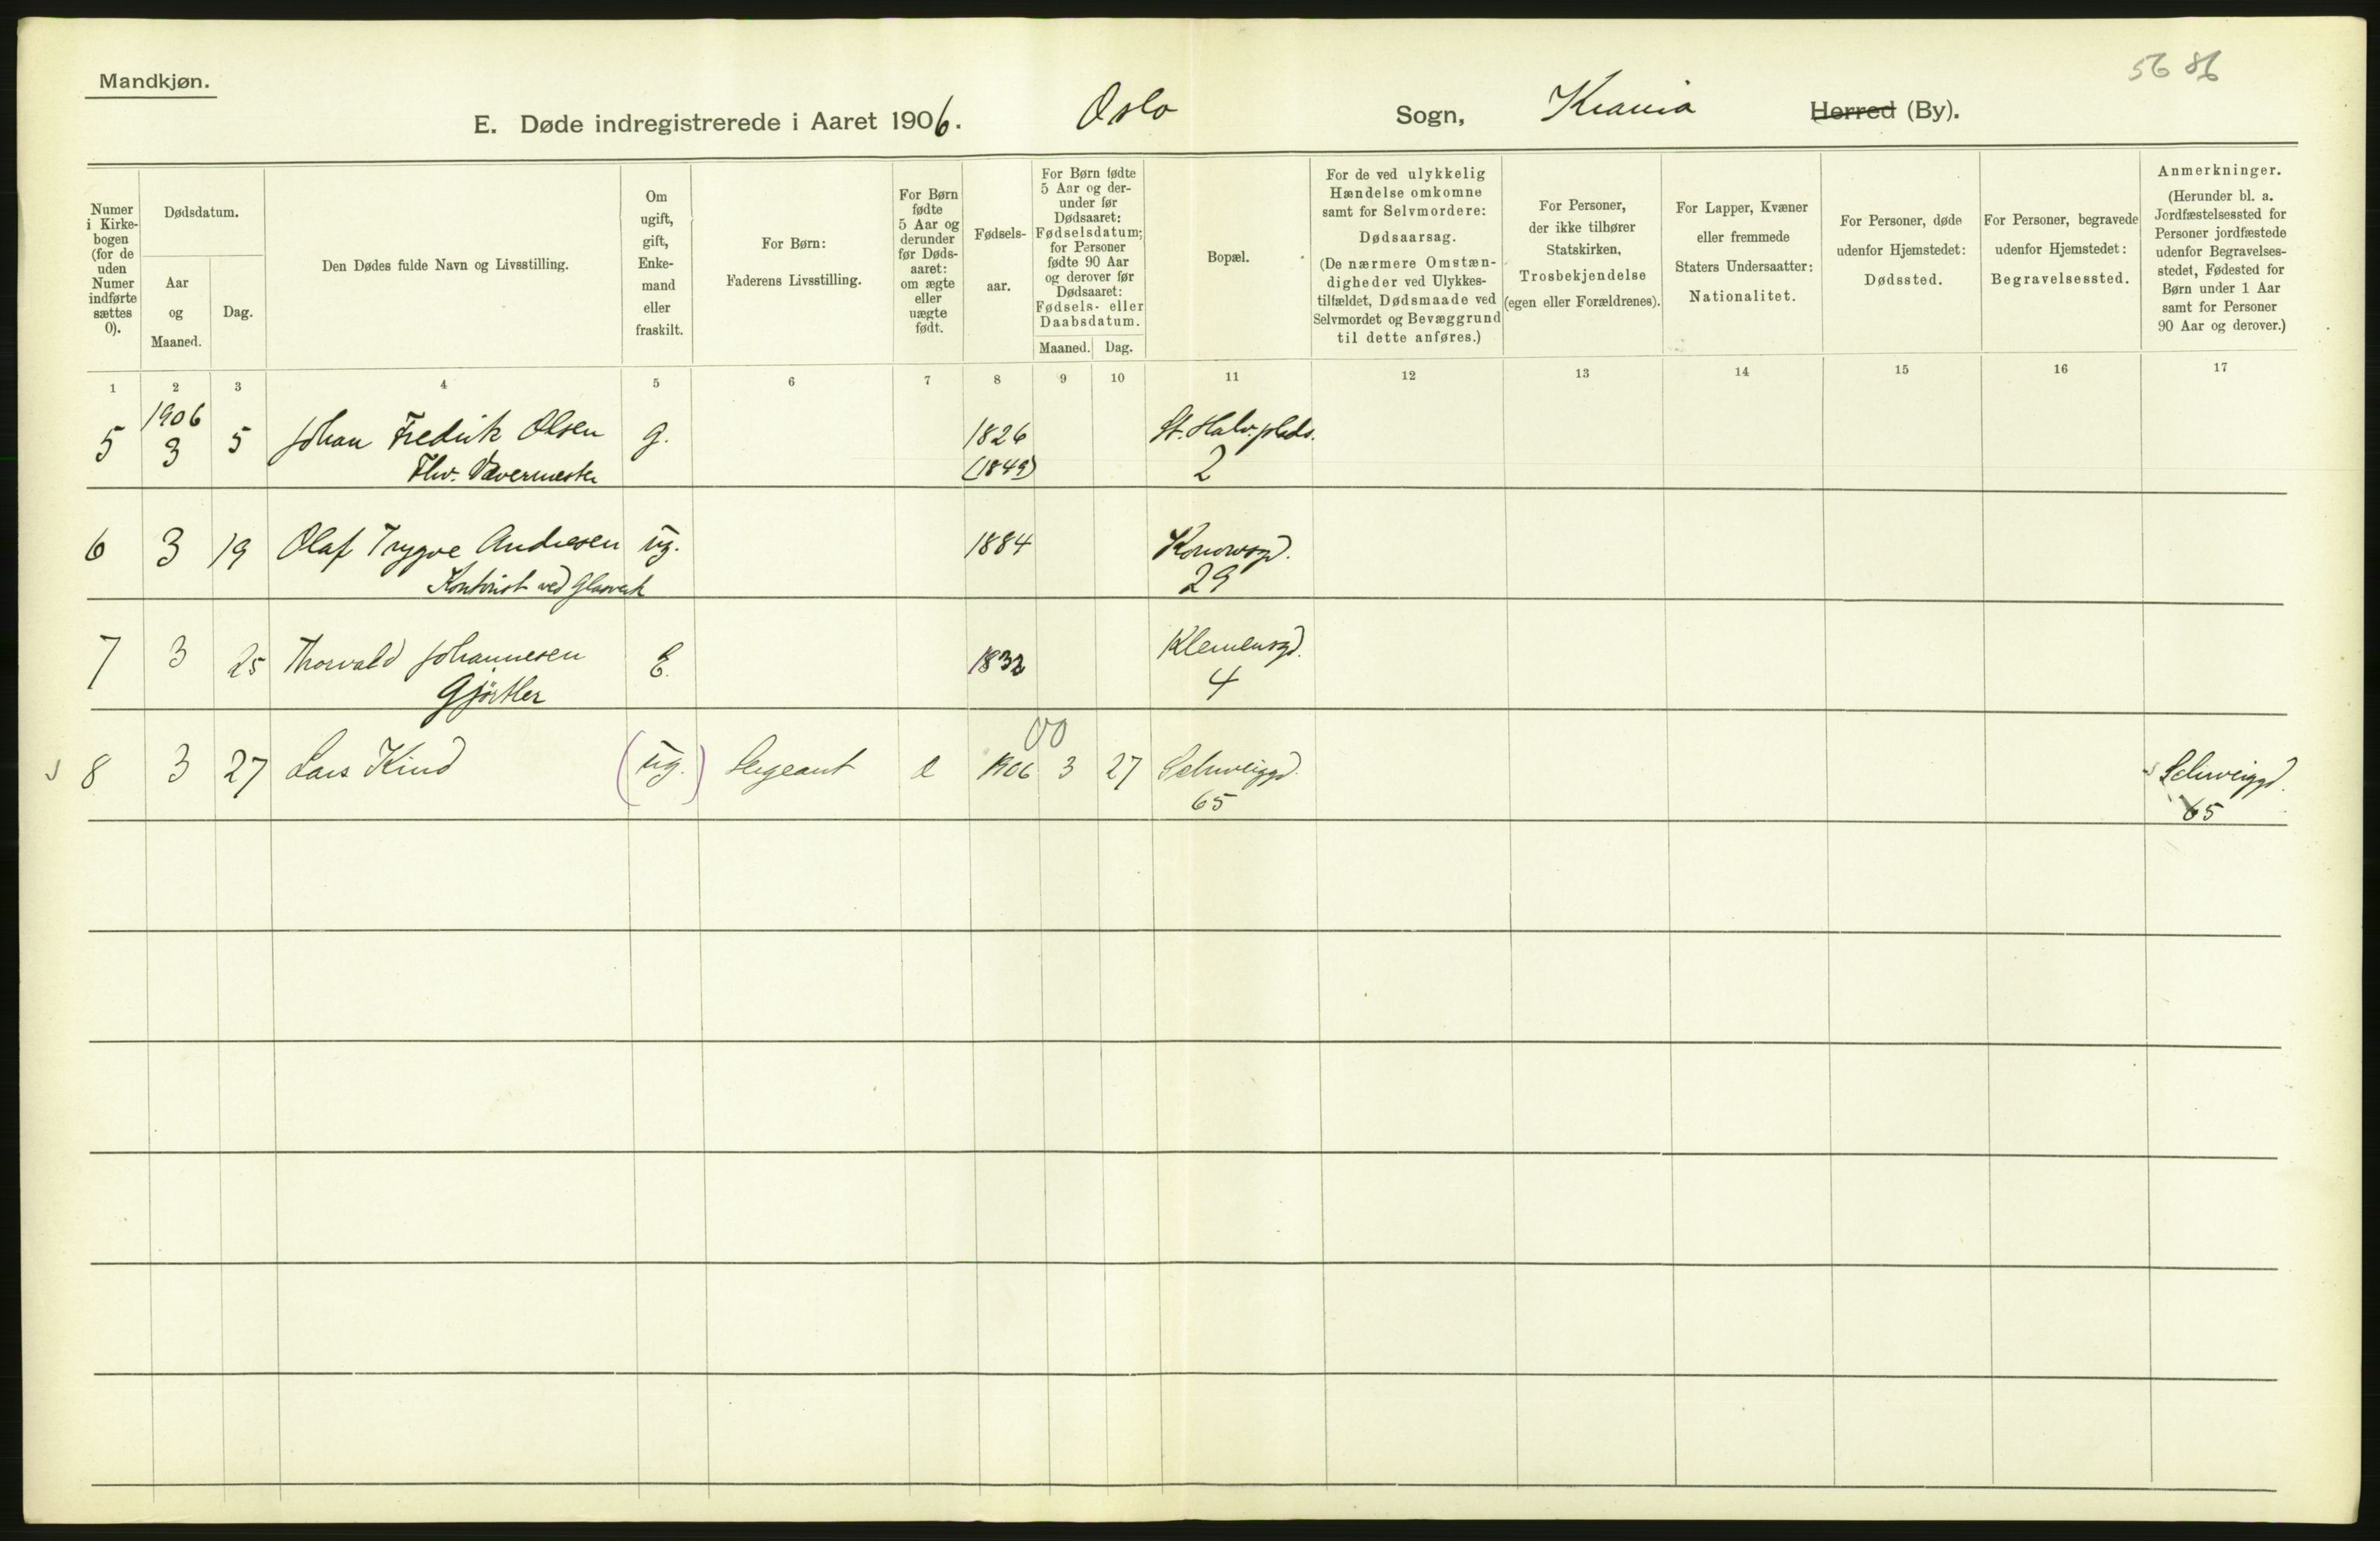 56 86
Mandkjøn.
E. Døde indregistrerede i Aaret 1906. Oslo Sogn, Krania Herred (By).
Numer i Kirkebogen (for de uden Numer indførte sættes 0).
Dødsdatum.
Aar og Maaned.
Dag.
Den Dødes fulde Navn og Livsstilling.
Om ugift, gift, Enkemand eller fraskilt.
For Børn:
Faderens Livsstilling.
For Børn fødte 5 Aar og derunder før Dødsaaret: om ægte eller uægte født.
Fødselsaar.
For Børn fødte 5 Aar og derunder før Dødsaaret: Fødselsdatum; for Personer fødte 90 Aar og derover før Dødsaaret: Fødsels- eller Daabsdatum.
Maaned. Dag.
Bopæl.
For de ved ulykkelig Hændelse omkomne samt for Selvmordere:
Dødsaarsag.
(De nærmere Omstændigheder ved Ulykkestilfældet, Dødsmaade ved Selvmordet og Bevæggrund til dette anføres.)
For Personer, der ikke tilhører Statskirken,
Trosbekjendelse
(egen eller Forældrenes).
For Lapper, Kvæner eller fremmede Staters Undersaatter:
Nationalitet.
For Personer, døde udenfor Hjemstedet:
Dødssted.
For Personer, begravede udenfor Hjemstedet:
Begravelsessted.
Anmerkninger.
(Herunder bl. a. Jordfæstelsessted for Personer jordfæstede udenfor Begravelsesstedet, Fødested for Børn under 1 Aar samt for Personer 90 Aar og derover.)
1 2 3 4 5 6 7 8 9 10 11 12 13 14 15 16 17
1906
5 3 5 Johan Fredrik Olsen g. 1826 St. Halv. plads.
Fhv. Vævermester (1849) 2
6 3 19 Olaf Trygve Andresen ug. 1884 Konowsgd.
Kontorist ved Glasverk 29
7 3 25 Thorvald Johannesen E. 1832 Klemensgd.
Gjørtler 4
00
8 3 27 Lars Kind (ug.) Sergeant 1906 3 27 Schweiggd. Schweiggd.
65 65